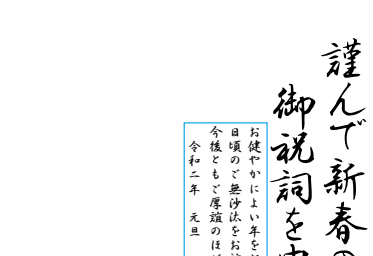 謹んで新春の
御祝詞を申
お健やかによい年を
日頃のご無沙汰をお
今後ともご厚誼のほ
令和二年 元旦